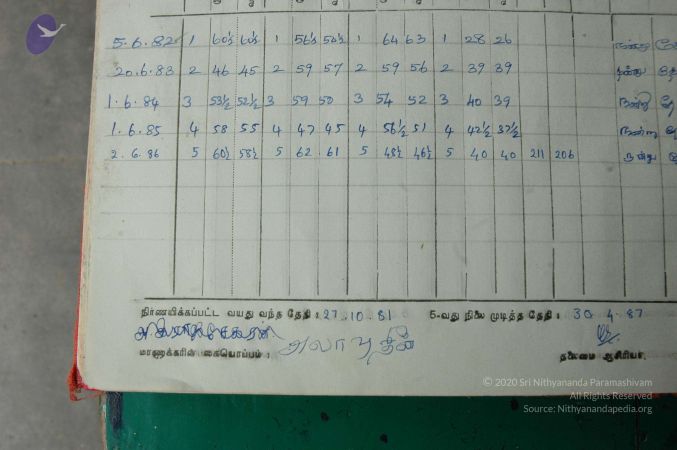 5.6.82 1 60½ 60½ 1 56½ 54½ 1 64 63 1 28 26 நன்று
20.6.83 2 46 45 2 59 57 2 59 56 2 39 39 நன்று
1.6.84 3 53½ 52½ 3 59 50 3 54 52 3 40 39 நன்று
1.6.85 4 58 55 4 47 45 4 56½ 51 4 42½ 37½ நன்று
2.6.86 5 60½ 58½ 5 62 61 5 48½ 46½ 5 40 40 211 206 நன்று
நிர்ணயிக்கப்பட்ட வயது வந்த தேதி : 27.10.81 5-வது நிலை முடித்த தேதி : 30 4.87
மாணாக்கரின் கையொப்பம் : அலாவுதீன் தலைமை ஆசிரியர்
© 2020 Sri Nithyananda Paramashivam
All Rights Reserved
Source: Nithyanandapedia.org